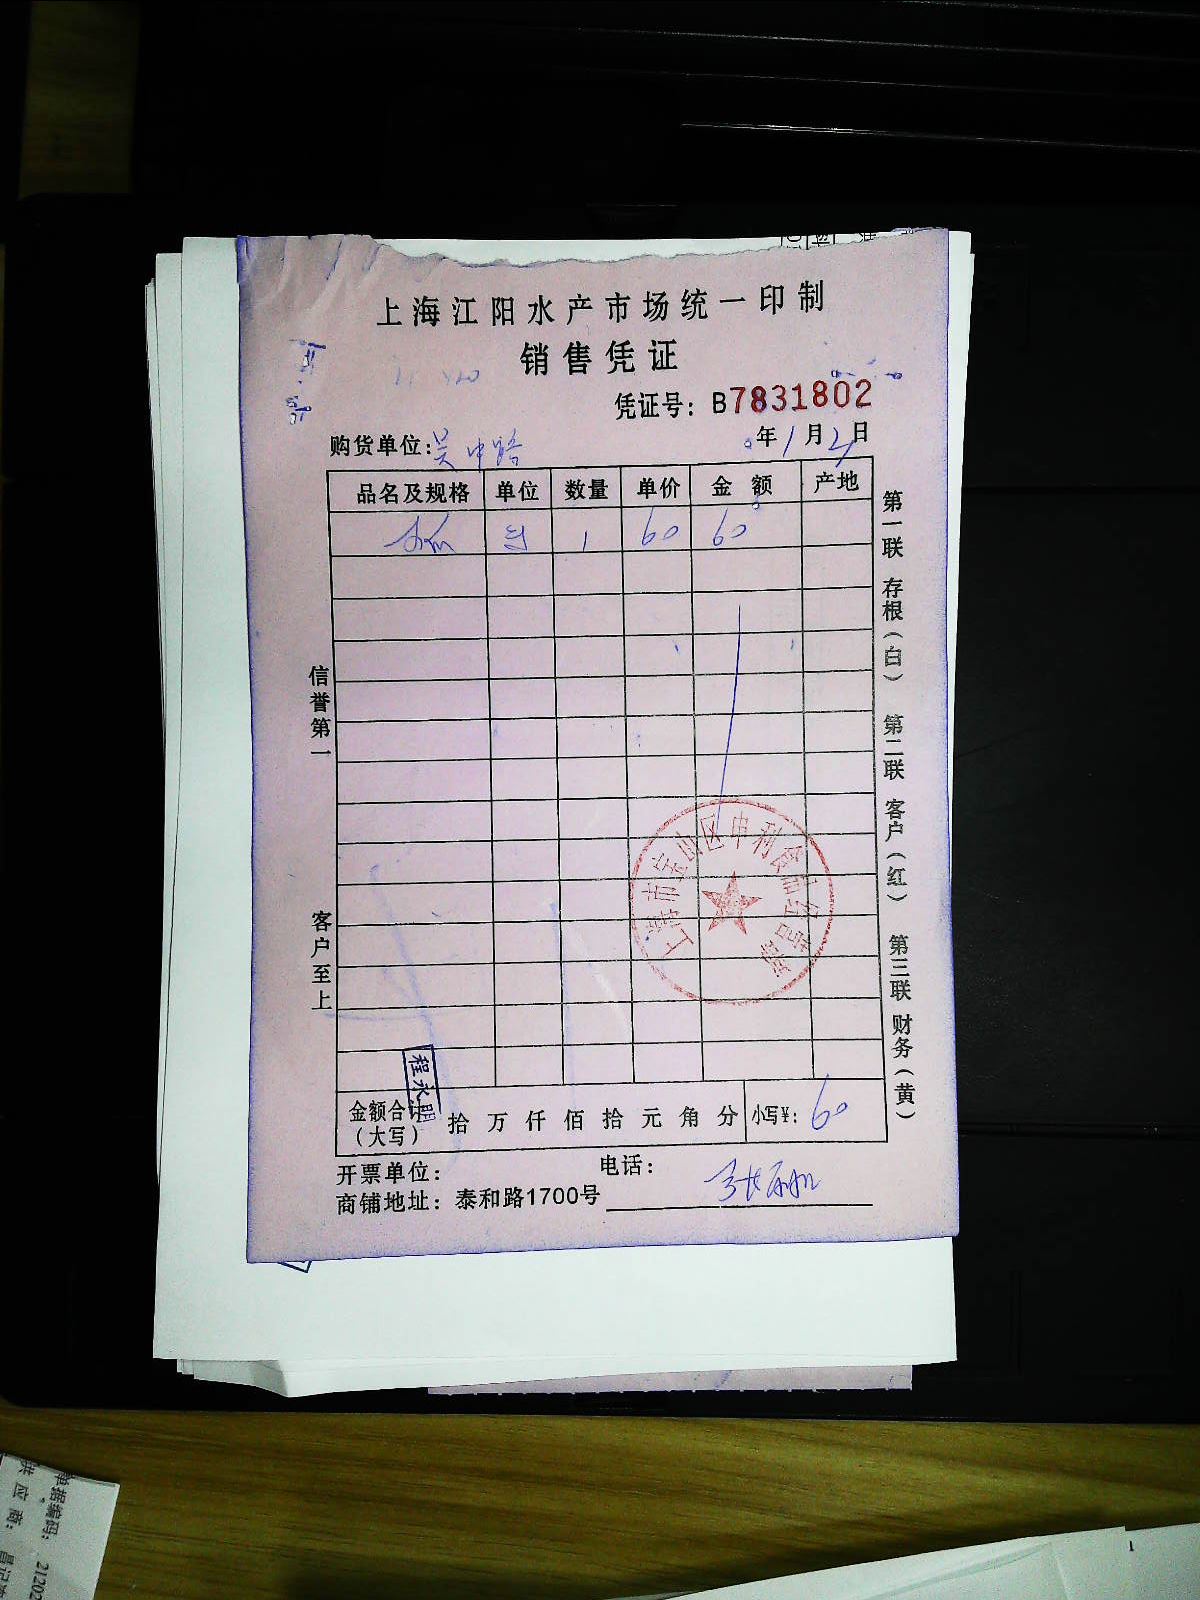 上海江阳水产市场统一印制
销售凭证
凭证号：B7831802
购货单位：吴中路
年1月21日
品名及规格 单位 数量 单价 金额 产地
1 60 60
信誉第一
客户至上
第一联 存根（白） 第二联 客户（红） 第三联 财务（黄）
上海市宝山区申利食品经营部
程永明
金额合计（大写） 拾 万 仟 佰 拾 元 角 分 小写¥：60
开票单位： 电话：
商铺地址：泰和路1700号
单据编码：21202
供应商：